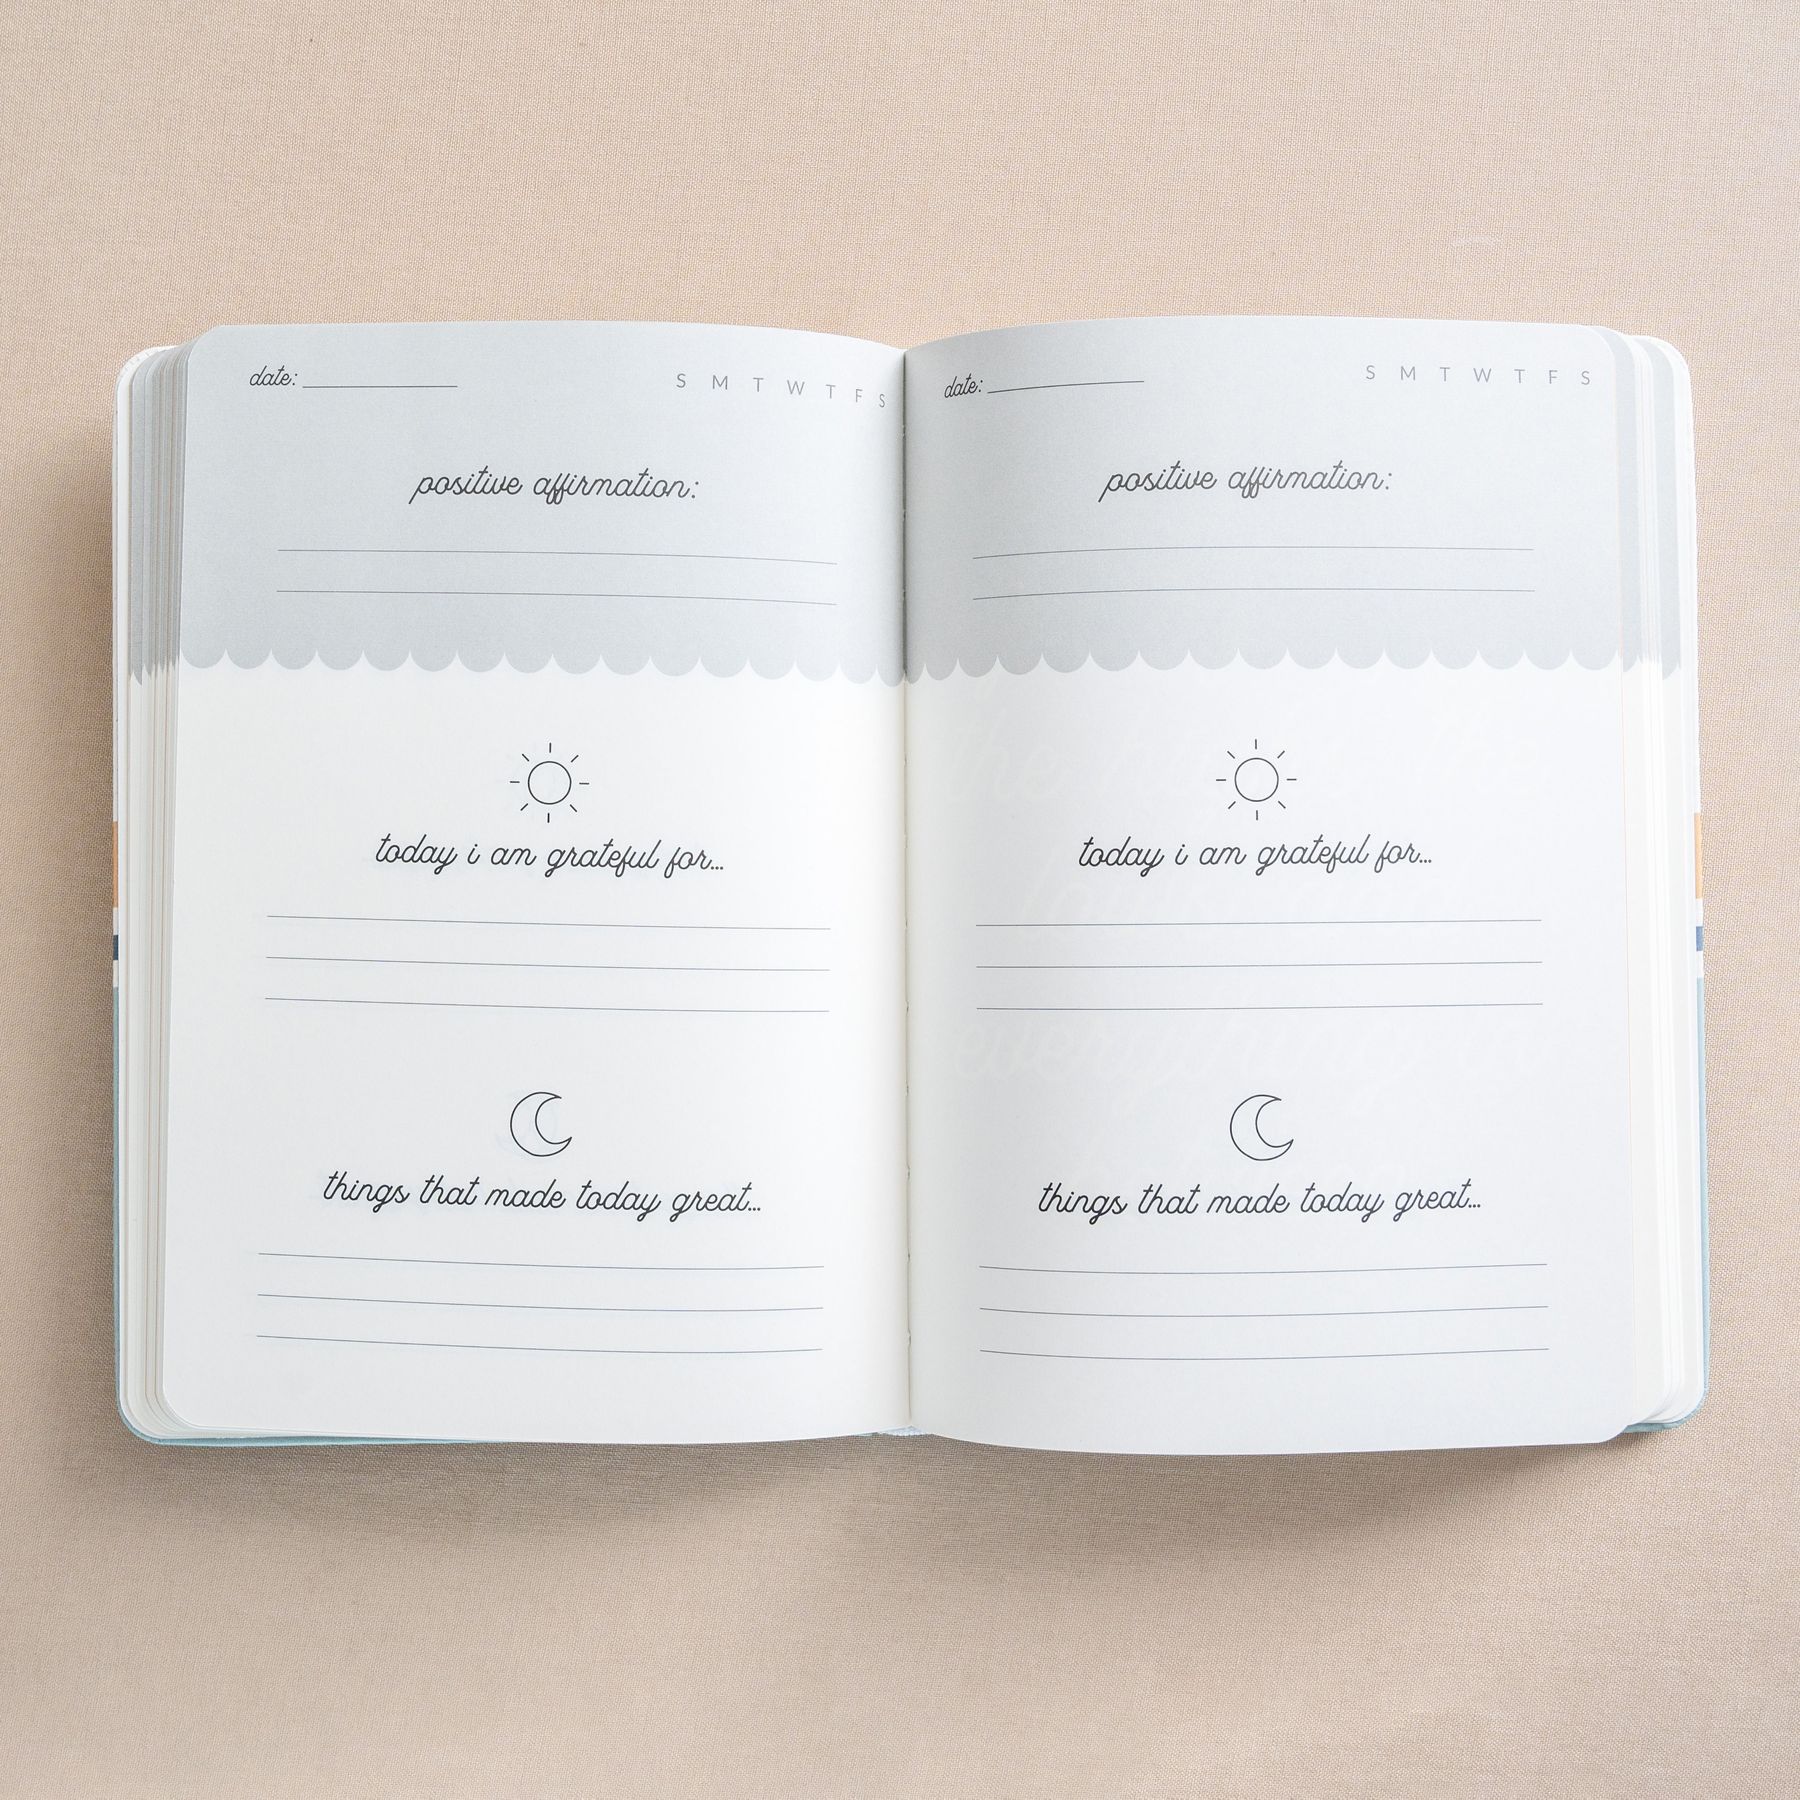 date:
S M T W T F S
positive affirmation:
today i am grateful for...
things that made today great...
date:
S M T W T F S
positive affirmation:
today i am grateful for...
things that made today great...